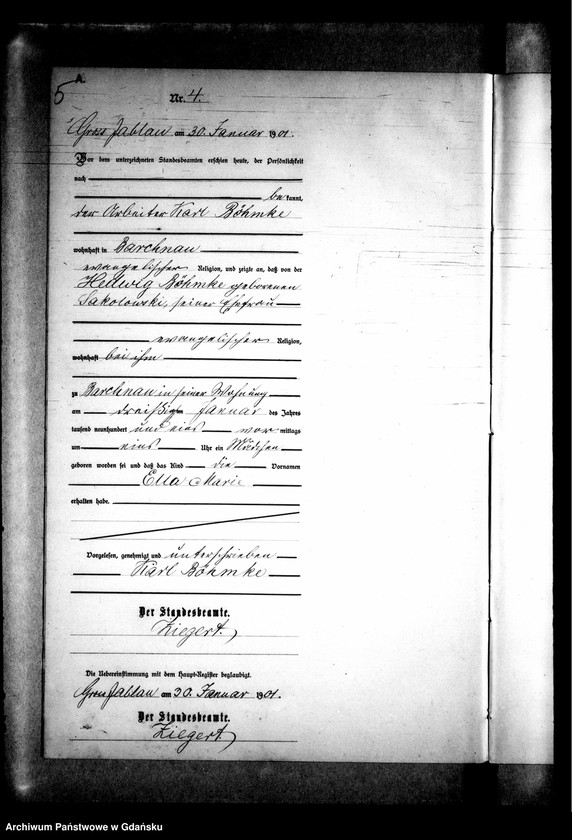 5
A.
Nr. 4.
Gross Jablau am 30. Januar 1901.
Vor dem unterzeichneten Standesbeamten erschien heute, der Persönlichkeit
nach
be kannt,
der Arbeiter Karl Böhmke
wohnhaft in Barchnau
evangelischer Religion, und zeigte an, daß von der
Hedwig Böhmke geborenen
Sakolowski, seiner Ehefrau
evangelischer Religion,
wohnhaft bei ihm
zu Barchnau in seiner Wohnung
am dreißigsten Januar des Jahres
tausend neunhundert und eins vor mittags
um eins Uhr ein Mädchen
geboren worden sei und daß das Kind die Vornamen
Ella Marie
erhalten habe.
Vorgelesen, genehmigt und unterschrieben
Karl Böhmke
Der Standesbeamte.
Ziegert.
Die Uebereinstimmung mit dem Haupt-Register beglaubigt.
Gross Jablau am 30. Januar 1901.
Der Standesbeamte.
Ziegert.
Archiwum Państwowe w Gdańsku